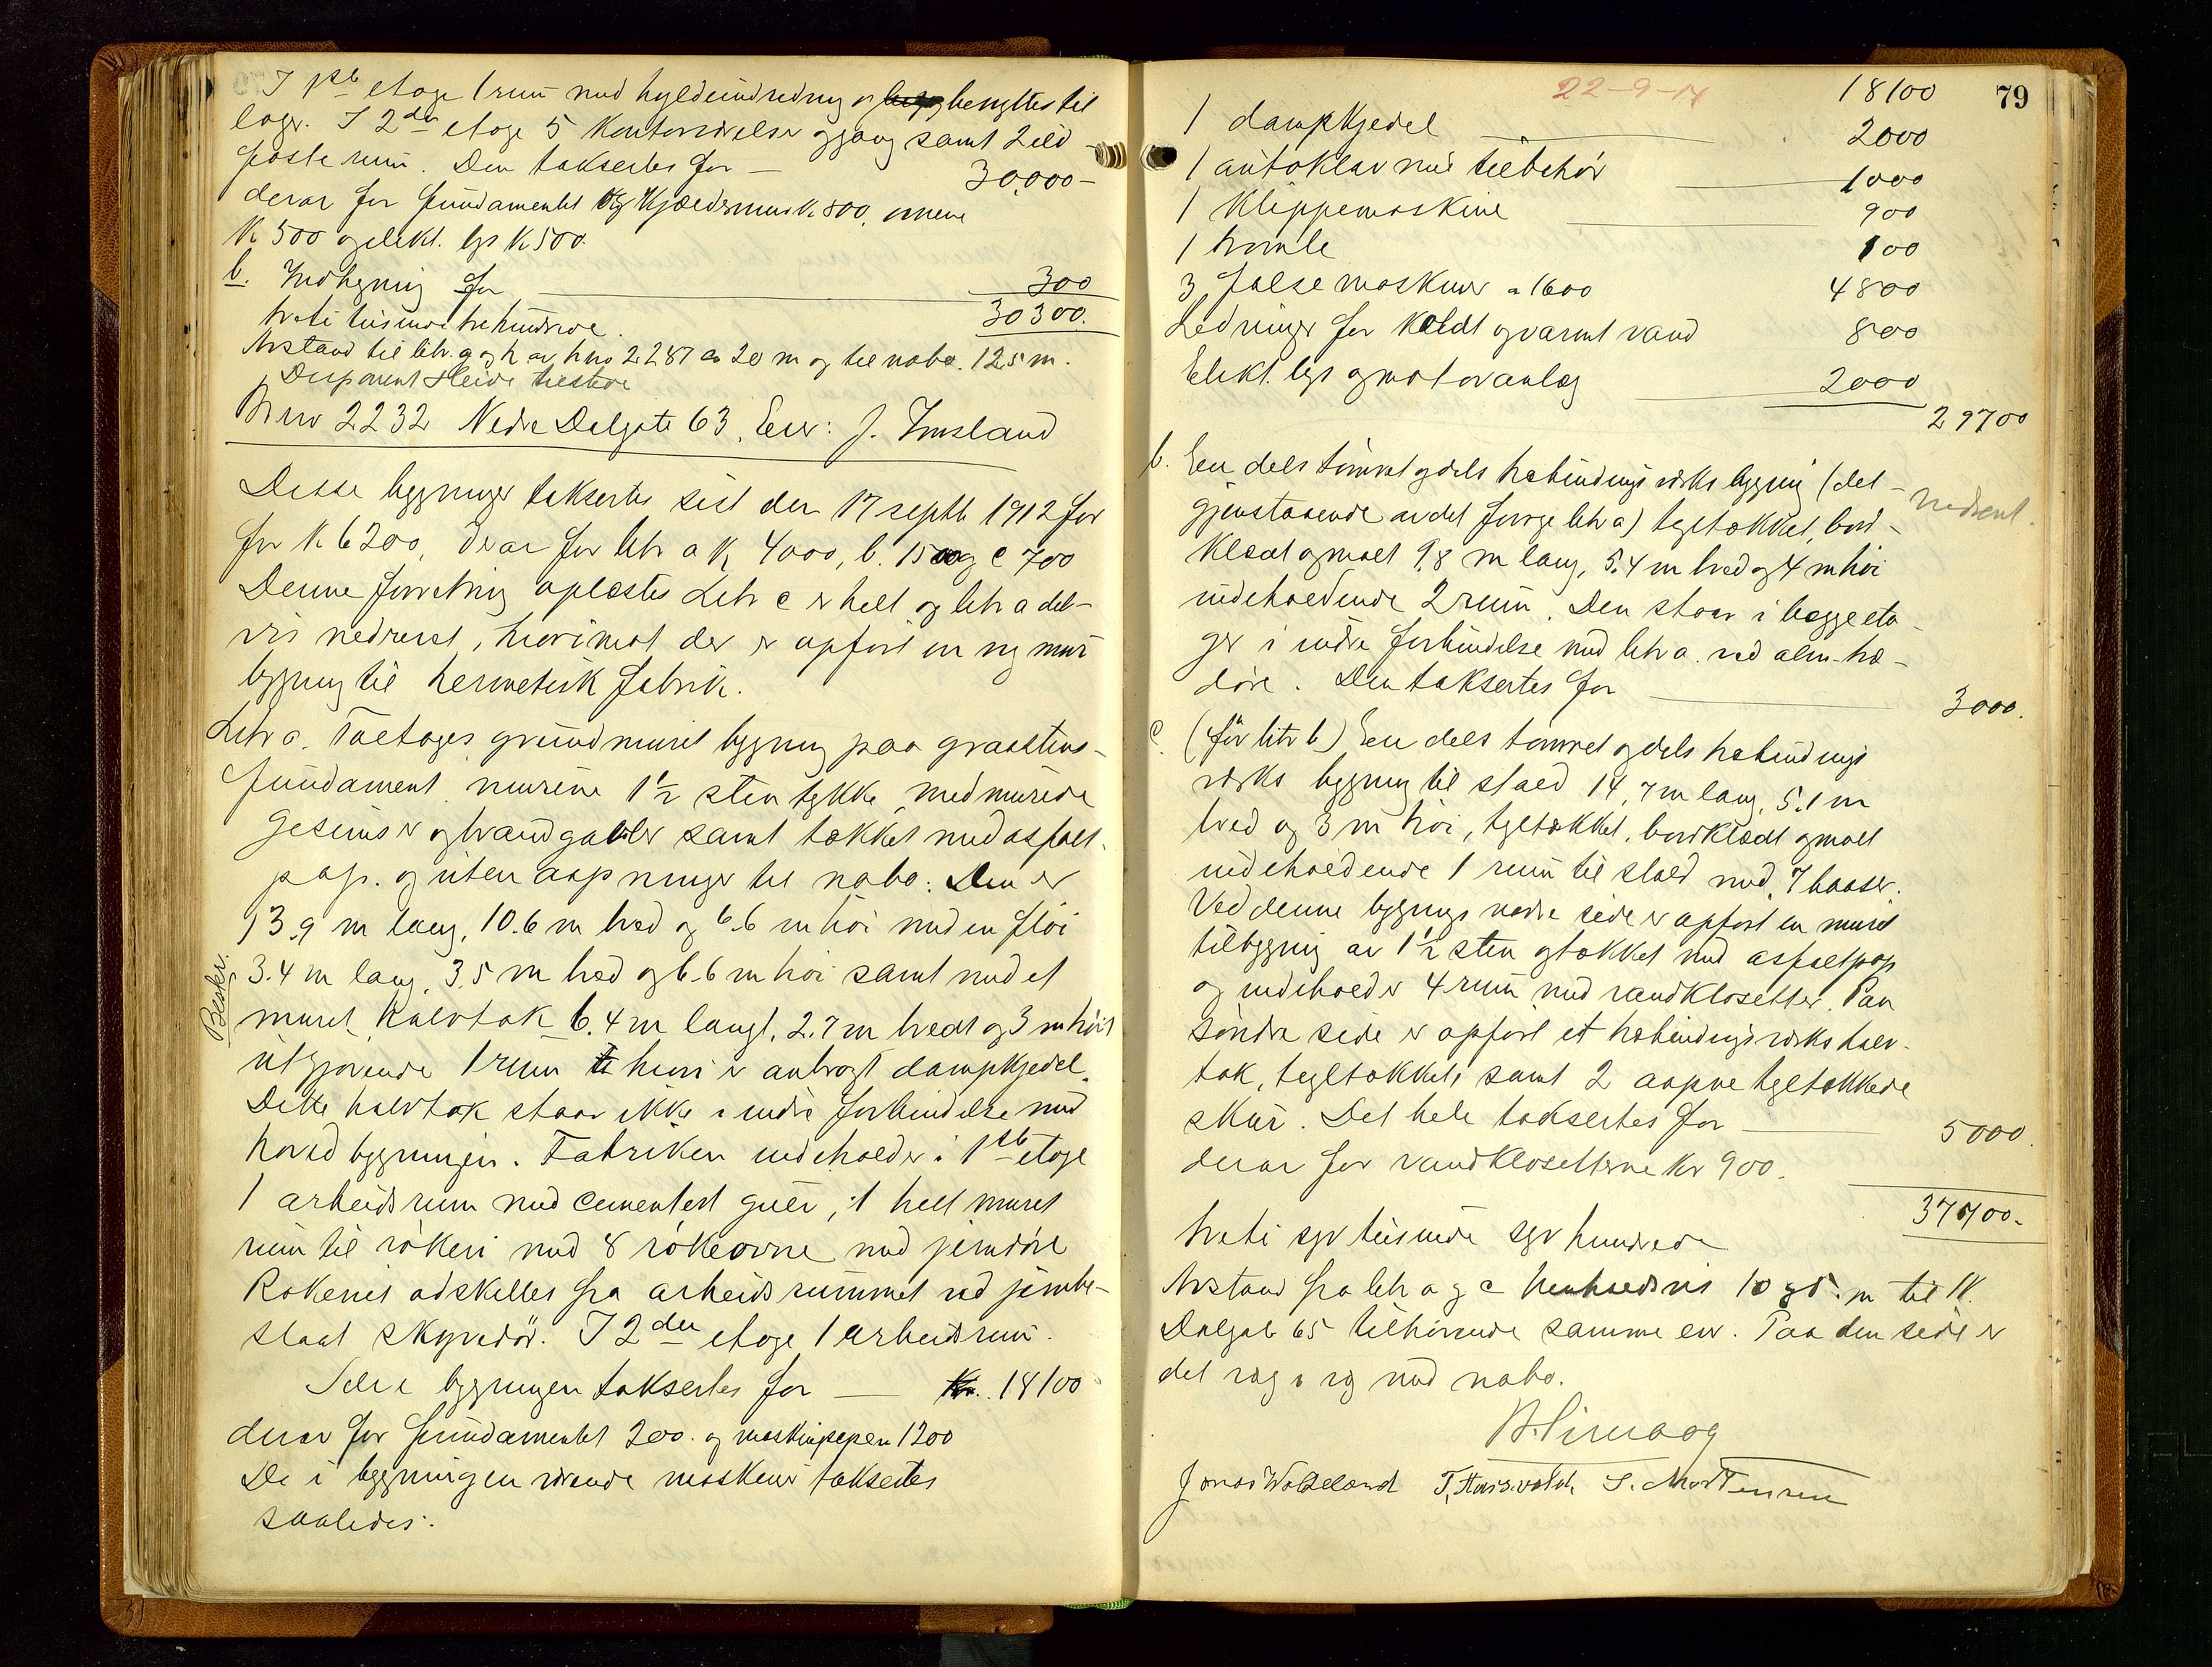 I 1ste etage 1 rum med hyldeindredning og benyttes til
lager. I 2den etage 5 kontorværelser og gang samt 2 ild-
faste rum. Den takseredes for — 30,000-
derav for fundamentet og kjældermur k. 800, ovnene
K 500 og elekt. lys K 500.
b. Indhegning for 300
treti tusinde trehundrede. 30300.
Avstand til litr. a og h av hno 2287 ca 20 m og til nabo. 125 m.
Disponent Heide tilstede
Br no 2232 Nedre Dalgate 63, Eier: J. Imsland
Disse bygninger taksertes sist den 17 septb 1912 for
for K 6200, derav for litr a K 4000, b. 1500 og c 700
Denne forretning oplæstes Litr c er helt og litr a del-
vis nedrevet, hvorimot der er opført en ny mur
bygning til hermetisk fabrik.
Litr a. Toetages grundmuret bygning paa graastens-
fundament, murene 1 1/2 sten tykke, med murede
gesimser og brandgavler samt tækket med asfalt-
pap. og uten aapninger til nabo. Den er
13.9 m lang, 10.6 m bred og 6.6 m høi med en fløi
3.4 m lang, 3.5 m bred og 6.6 m høi samt med et
Beskr.
muret halvtak 6.4 m langt, 2.7 m bredt og 3 m høit
utgjørende 1 rum hvori er anbragt dampkjedel.
Dette halvtak staar ikke i indre forbindelse med
hovedbygningen. Fabriken indeholder i 1ste etage
1 arbeidsrum med cementert gulv, 1 helt muret
rum til røkeri med 8 røkeovne med jerndøre
Rokeriet adskilles fra arbeidsrummet ved jernbe-
slaat skyvedør. I 2den etage 1 arbeidsrum.
Selve bygningen taksertes for — Kr. 18100
derav for fundamentet 200. og maskinpipen 1200
De i bygningen værende maskiner taksertes
saaledes:
79
22-9-14
18100
1 dampkjedel 2000
1 autoklav med tilbehør 1000
1 klippemaskine 900
1 tromle 100
3 false maskiner a 1600 4800
Ledninger for koldt og varmt vand 800
Elekt. lys og motoranlæg 2000
29700
b. En dels tømret og dels trebindingsverks bygning (det
nedrevet.
gjenstaaende av det forrige litr a) tegltækket, bord-
klædt og malt 9.8 m lang, 5.4 m bred og 4 m høi
indeholdende 2 rum. Den staar i begge eta-
ger i indre forbindelse med litr a. ved alm. træ-
døre. Den taksertes for 3000.
c. (før litr b) En dels tømret og dels trebindings
verks bygning til stald 14,7 m lang, 5.1 m
bred og 3 m høi, tegltækket, bordklædt og malt
indeholdende 1 rum til stald med 7 baaser.
Ved denne bygnings nordre side er opført en muret
tilbygning av 1 1/2 sten og tækket med asfaltpap
og indeholder 4 rum med vandklosetter. Paa
søndre side er opført et trebindingsverks halv-
tak, tegltækket samt 2 aapne tegltækkede
skur. Det hele taksertes for 5000.
derav for vandklosetterne kr 900.
37700.-
treti syv tusinde syv hundrede
Avstand fra litr a og c henholdsvis 10 og 5. m til N.
Dalgat 65 tilhørende samme eier. Paa den side er
det væg i væg med nabo.
Jonas Wadeland T. Hausvatch S. Mortensen